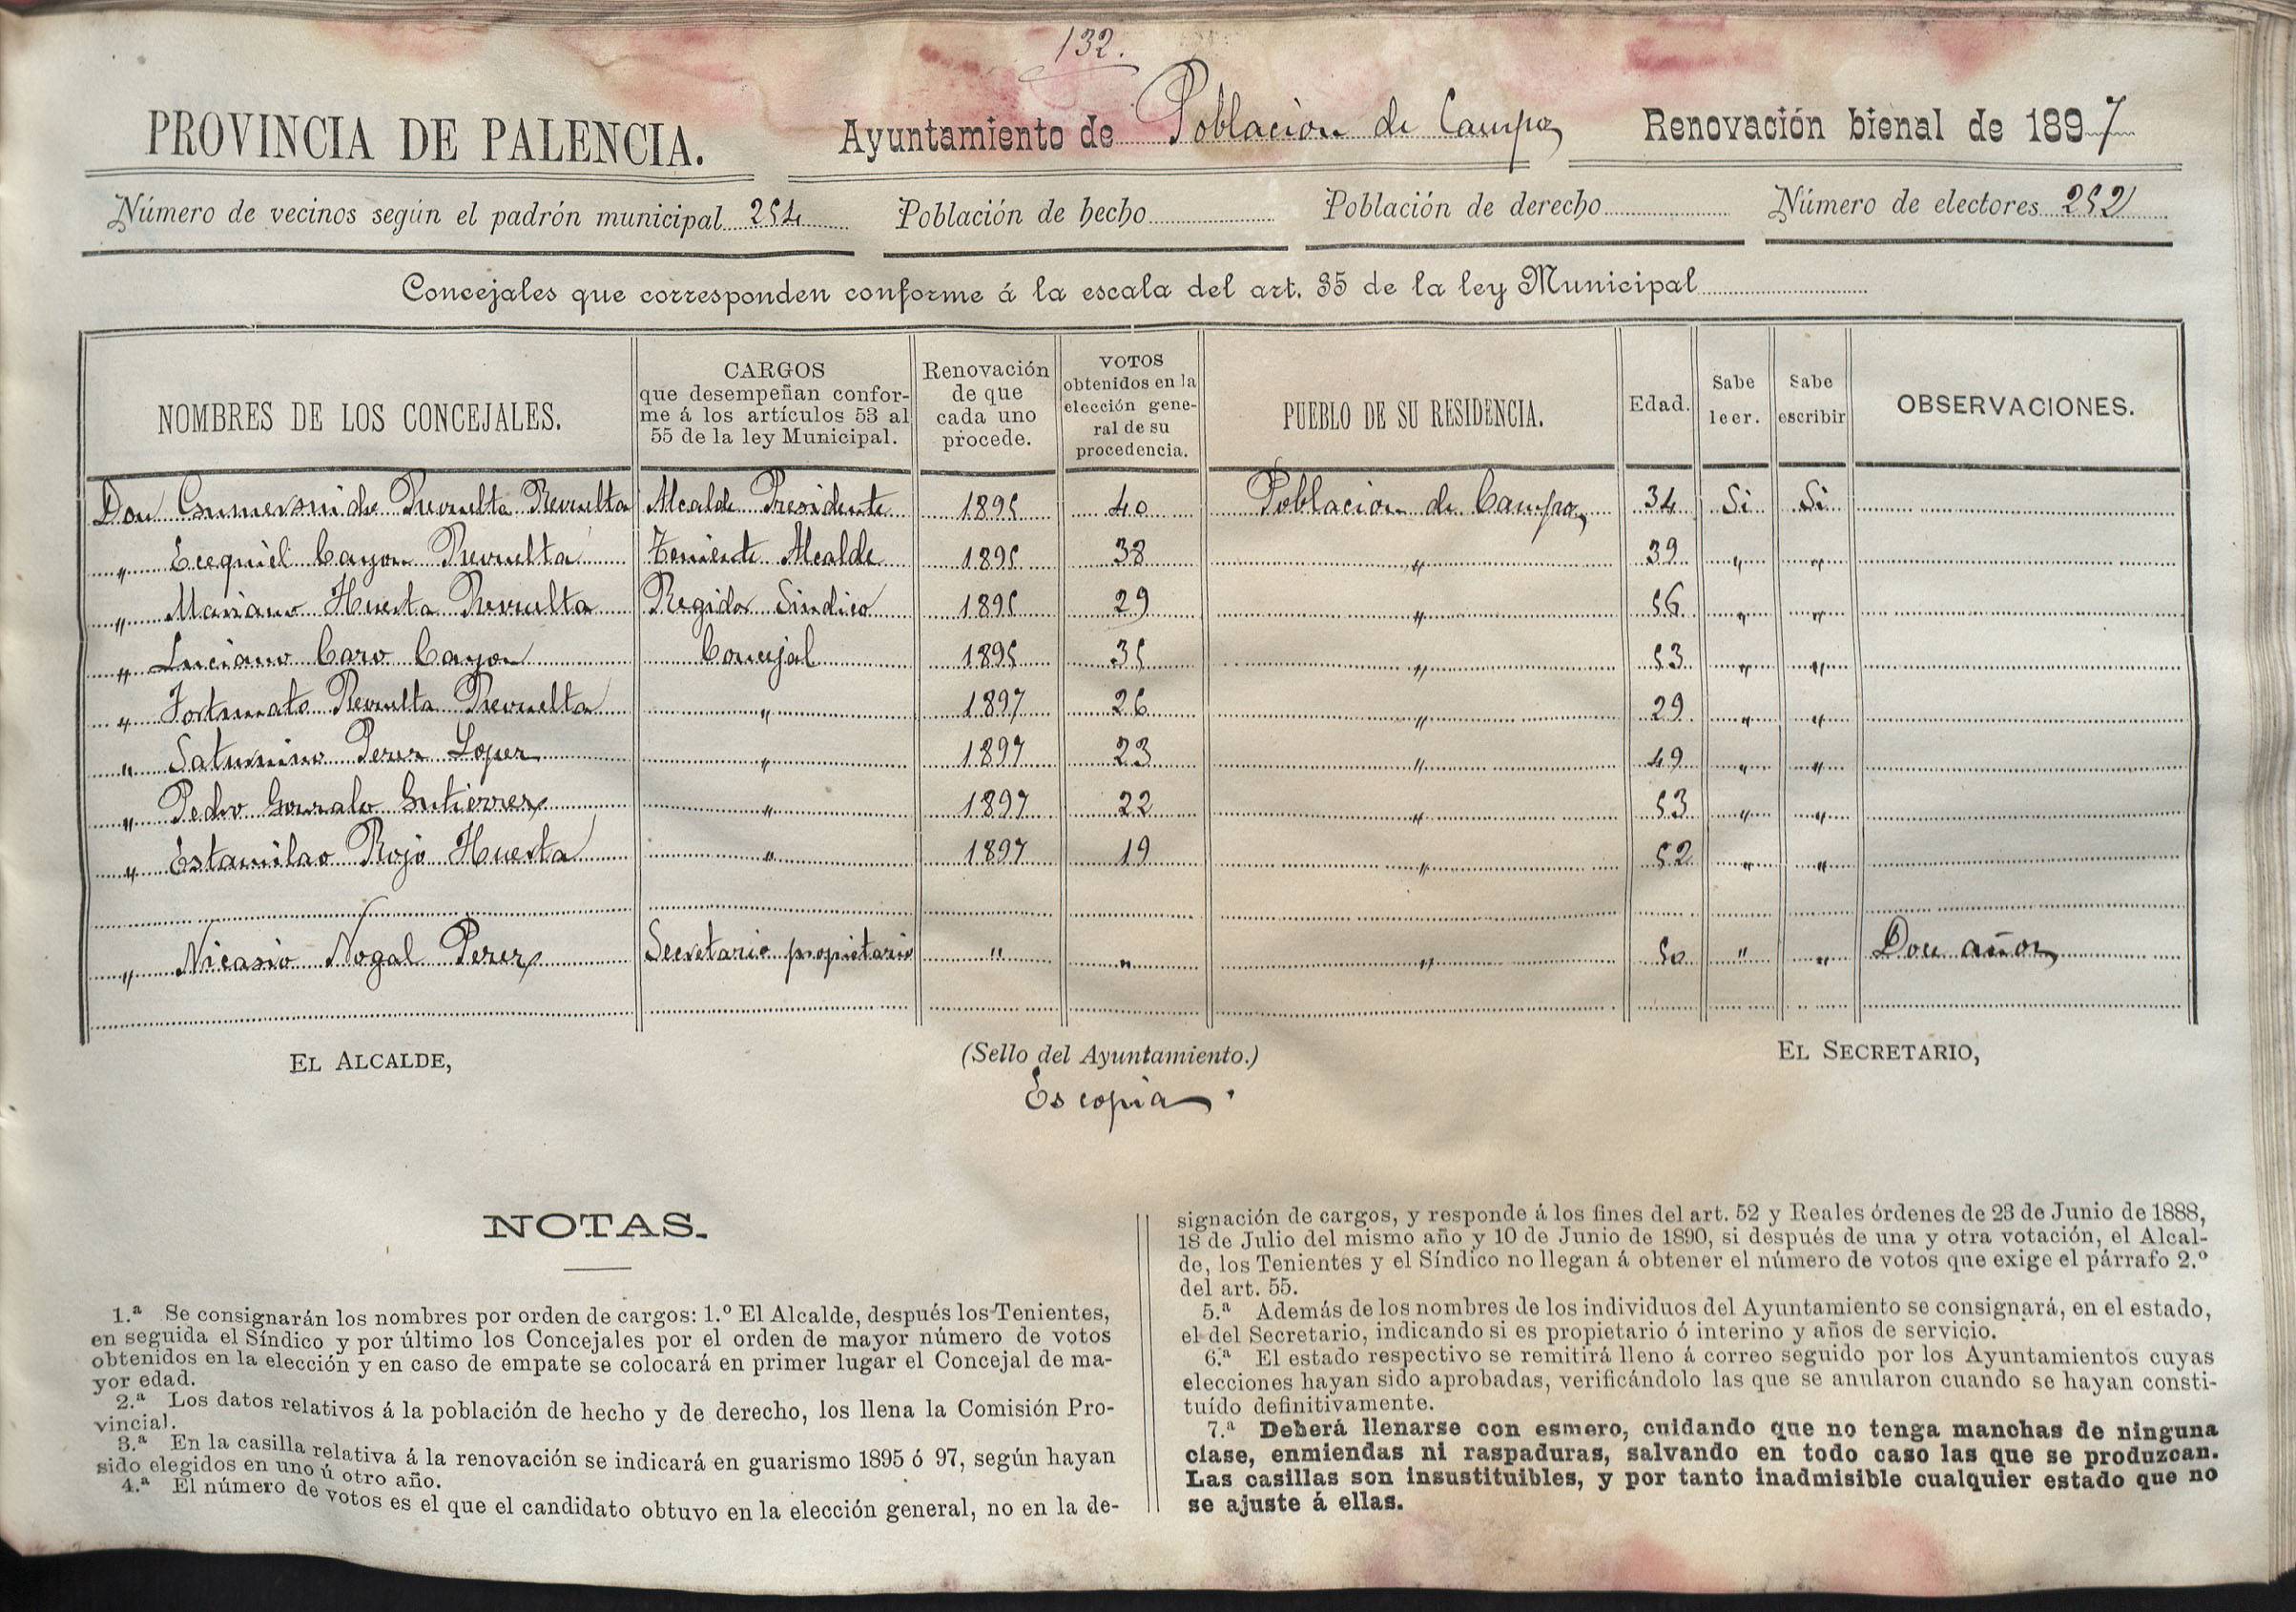 132.
PROVINCIA DE PALENCIA. Ayuntamiento de Poblacion de Campos Renovación bienal de 1897
Número de vecinos según el padrón municipal 254 Población de hecho Población de derecho Número de electores 252
Concejales que corresponden conforme á la escala del art. 35 de la ley Municipal
NOMBRES DE LOS CONCEJALES. CARGOS que desempeñan conforme á los artículos 53 al 55 de la ley Municipal. Renovación de que cada uno procede. VOTOS obtenidos en la elección general de su procedencia. PUEBLO DE SU RESIDENCIA. Edad. Sabe leer. Sabe escribir OBSERVACIONES.
Don Revuelta Revuelta Alcalde Presidente 1895 40 Poblacion de Campos 34 Si Si
" Ecequiel Cayon Revuelta Teniente Alcalde 1895 38 " 39 " "
" Mariano Huerta Revuelta Regidor Sindico 1895 29 " 56 " "
" Luciano Caro Cayon Concejal 1895 35 " 53 " "
" Fortunato Revuelta Revuelta " 1897 26 " 29 " "
" Saturnino Perez Lopez " 1897 23 " 49 " "
" Pedro Gonzalo Gutierrez " 1897 22 " 53 " "
" Estanislao Rojo Huerta " 1897 19 " 52 " "
" Nicasio Nogal Perez Secretario propietario " " " 50 " " Doce años
EL ALCALDE, (Sello del Ayuntamiento.) EL SECRETARIO,
Es copia.
NOTAS.
1.ª Se consignarán los nombres por orden de cargos: 1.º El Alcalde, después los Tenientes,
en seguida el Síndico y por último los Concejales por el orden de mayor número de votos
obtenidos en la elección y en caso de empate se colocará en primer lugar el Concejal de ma-
yor edad.
2.ª Los datos relativos á la población de hecho y de derecho, los llena la Comisión Pro-
vincial.
3.ª En la casilla relativa á la renovación se indicará en guarismo 1895 ó 97, según hayan
sido elegidos en uno ú otro año.
4.ª El número de votos es el que el candidato obtuvo en la elección general, no en la de-
signación de cargos, y responde á los fines del art. 52 y Reales órdenes de 23 de Junio de 1888,
18 de Julio del mismo año y 10 de Junio de 1890, si después de una y otra votación, el Alcal-
de, los Tenientes y el Síndico no llegan á obtener el número de votos que exige el párrafo 2.º
del art. 55.
5.ª Además de los nombres de los individuos del Ayuntamiento se consignará, en el estado,
el del Secretario, indicando si es propietario ó interino y años de servicio.
6.ª El estado respectivo se remitirá lleno á correo seguido por los Ayuntamientos cuyas
elecciones hayan sido aprobadas, verificándolo las que se anularon cuando se hayan consti-
tuído definitivamente.
7.ª Deberá llenarse con esmero, cuidando que no tenga manchas de ninguna
clase, enmiendas ni raspaduras, salvando en todo caso las que se produzcan.
Las casillas son insustituibles, y por tanto inadmisible cualquier estado que no
se ajuste á ellas.